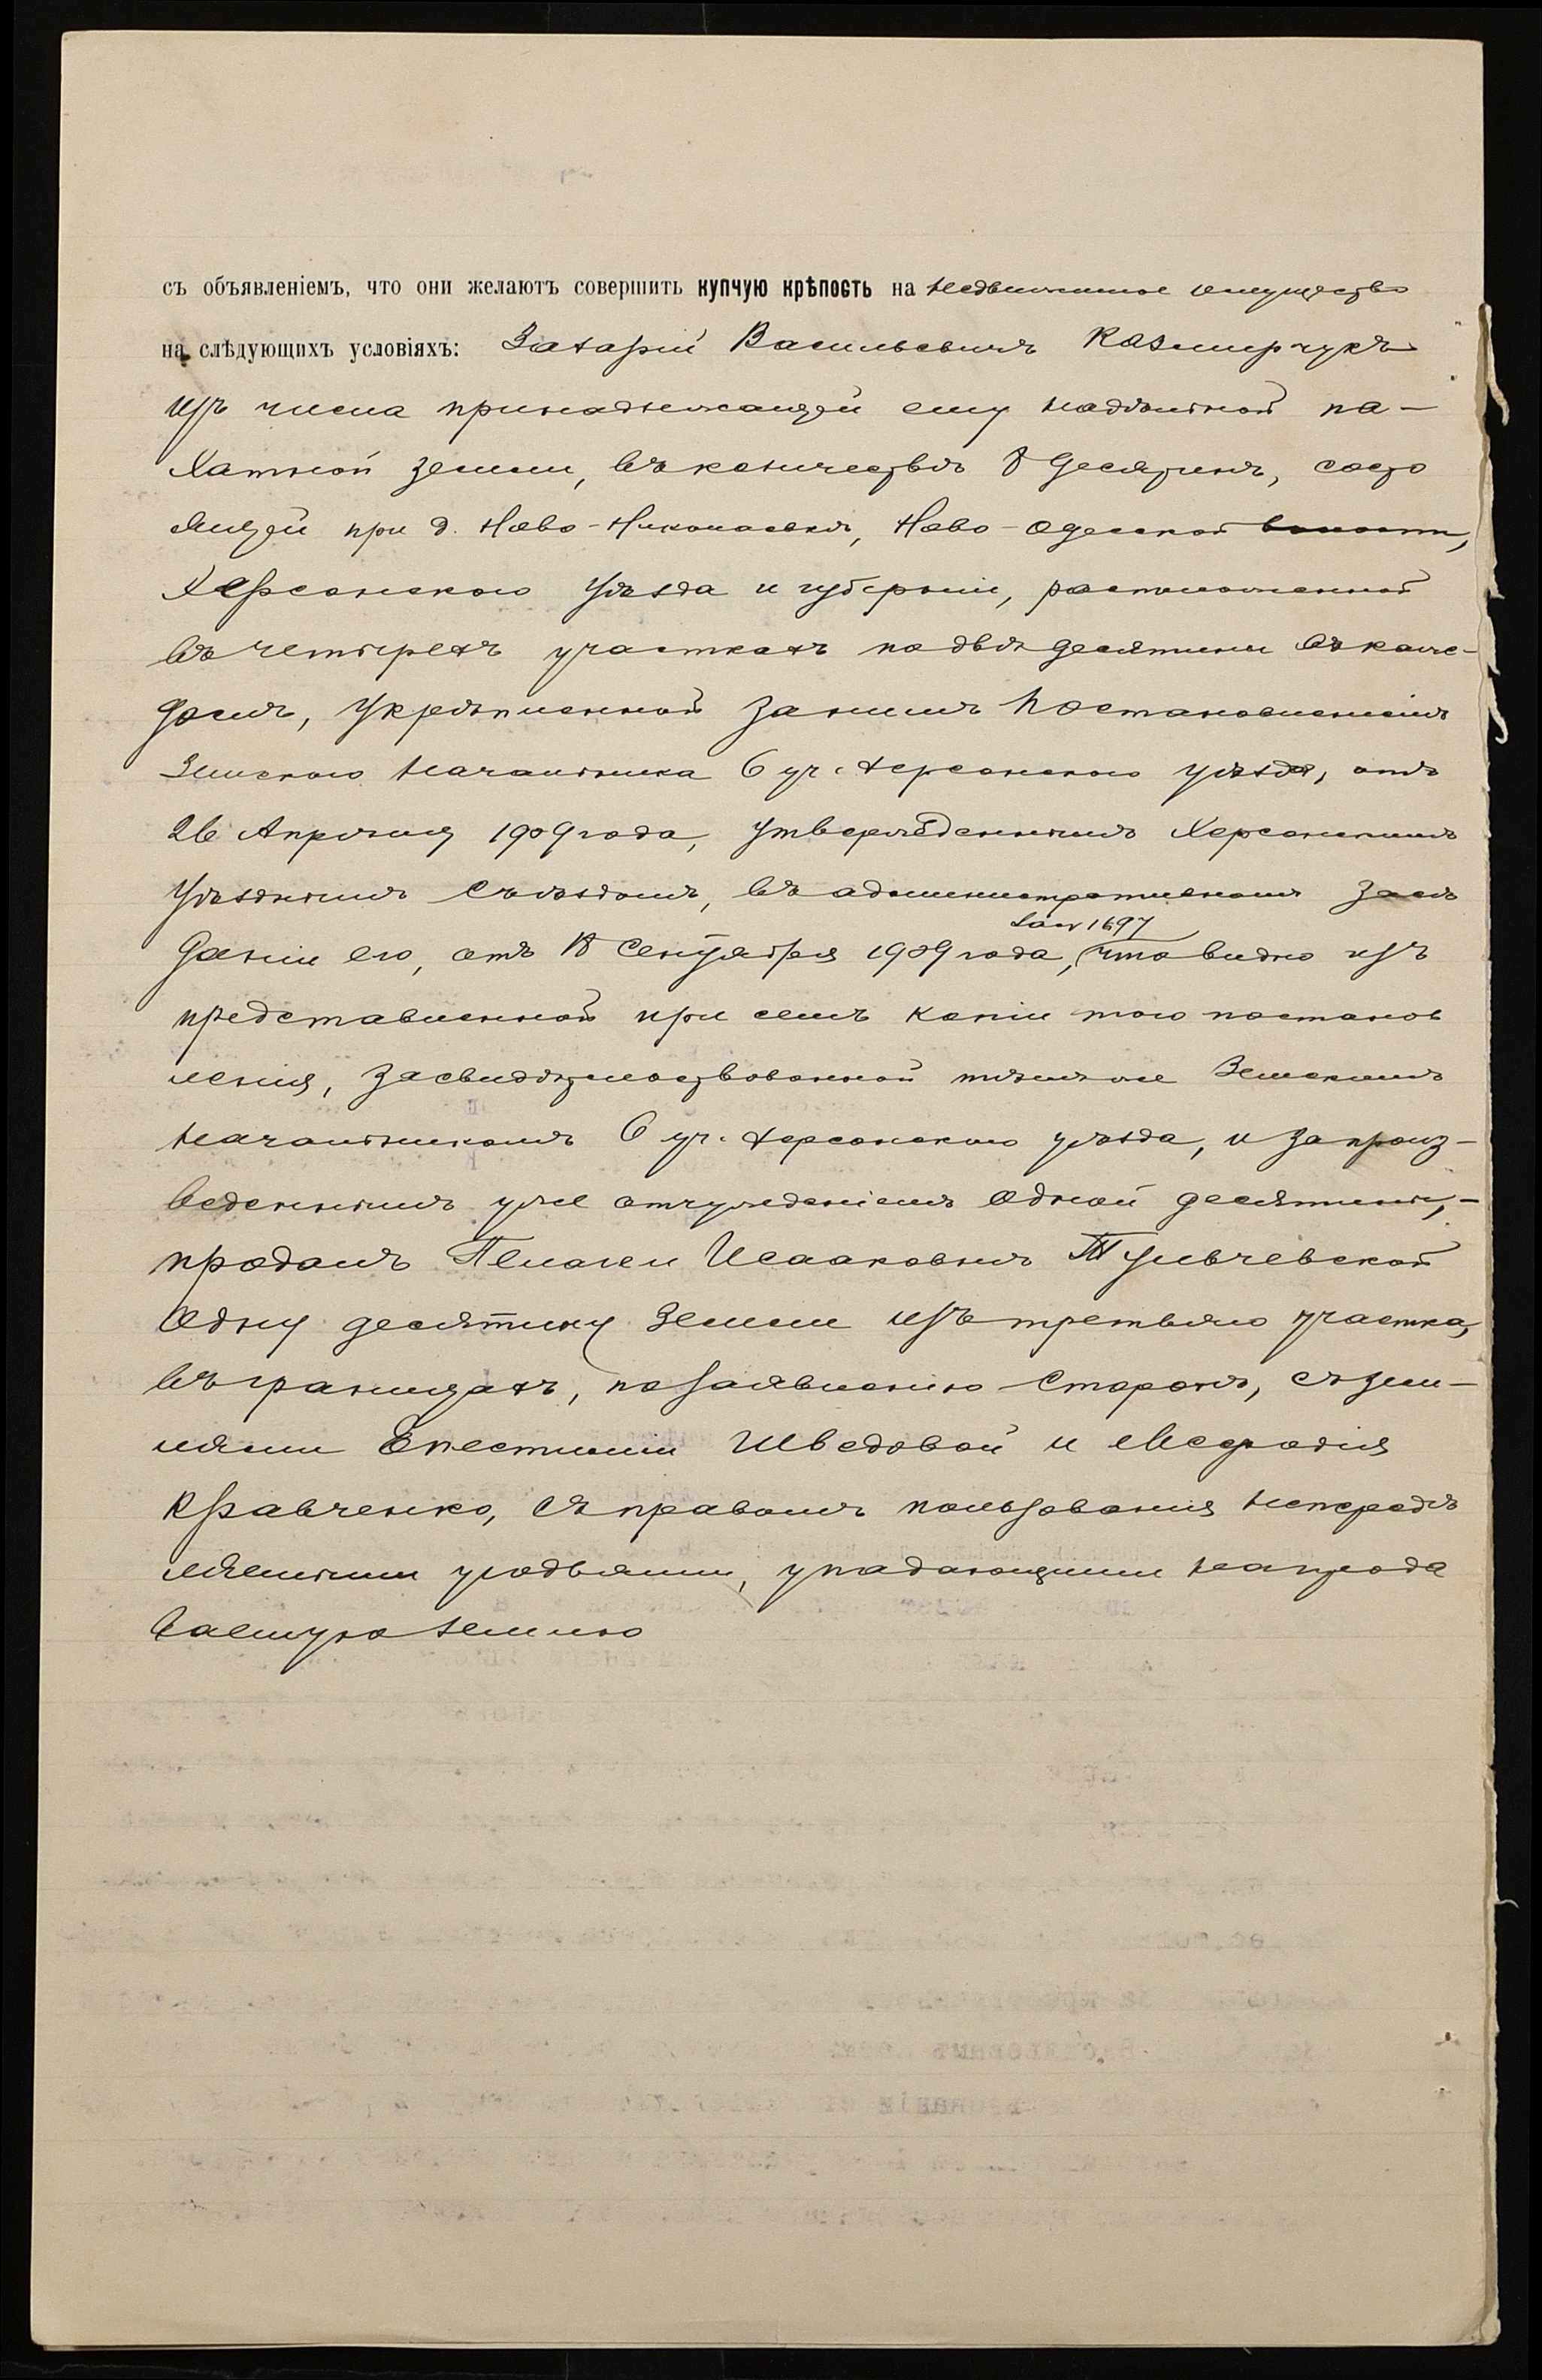 съ объявленіемъ, что они желаютъ совершить купчую крѣпость на недвижимое имущество
на слѣдующихъ условіяхъ: Захарій Васильевичъ Казмирчукъ
изъ числа принадлежащей ему надѣльной па-
хатной земли, въ количествѣ 8 десятинъ, состо
ящей при д. Ново-Николаевкѣ, Ново-Одесской волости,
Херсонскаго уѣзда и губерніи, расположенной
въ четырехъ участкахъ по двѣ десятины въ каж-
домъ, укрѣпленной за нимъ постановленіемъ
Земскаго Начальника 6 уч. Херсонскаго уѣзда, отъ
26 Апрѣля 1909 года, утвержденнымъ Херсонскимъ
Уѣзднымъ Съѣздомъ, въ административномъ засѣ
даніи его, отъ 18 Сентября 1909 года, за № 1697 что видно изъ
представленной при семъ копіи того постанов
ленія, засвидѣтельствованной тѣмъ же Земскимъ
Начальникомъ 6 уч. Херсонскаго уѣзда, и за произ-
веденнымъ уже отчужденіемъ одной десятины,-
продалъ Пелагеи Исааковнѣ Тульчевской
одну десятину земли изъ третьяго участка,
въ границахъ, по заявленію сторонъ, съ зем-
лями Епестиміи Шведовой и Меѳодія
Кравченко, съ правомъ пользованія непередѣ
ляемыми угодьями, упадающими на прода
ваемую землю